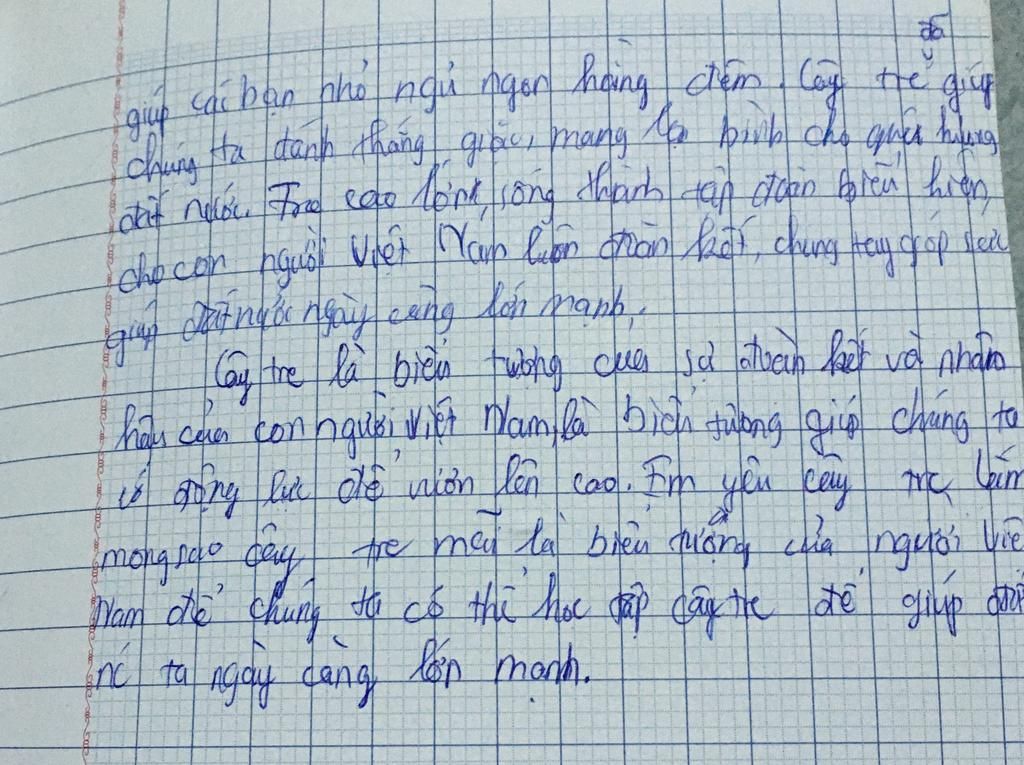 đã
giúp các bạn nhỏ ngủ ngon hàng đêm. Cây tre giúp
chúng ta đánh thắng giặc, mang lại bình cho quê hương
đất nước. Tre cao lớn, sống thành tập đoàn biểu hiện
cho con người Việt Nam luôn đoàn kết, chung tay góp sức
giúp đất nước ngày càng lớn mạnh.
Cây tre là biểu tượng của sự đoàn kết và nhân
hậu của con người Việt Nam, là biểu tượng giúp chúng ta
có động lực để vươn lên cao. Em yêu cây tre lắm
mong sao cây tre mãi là biểu tượng của người Việ
Nam để chúng ta có thể học tập cây tre để giúp đất
nc ta ngày càng lớn mạnh.